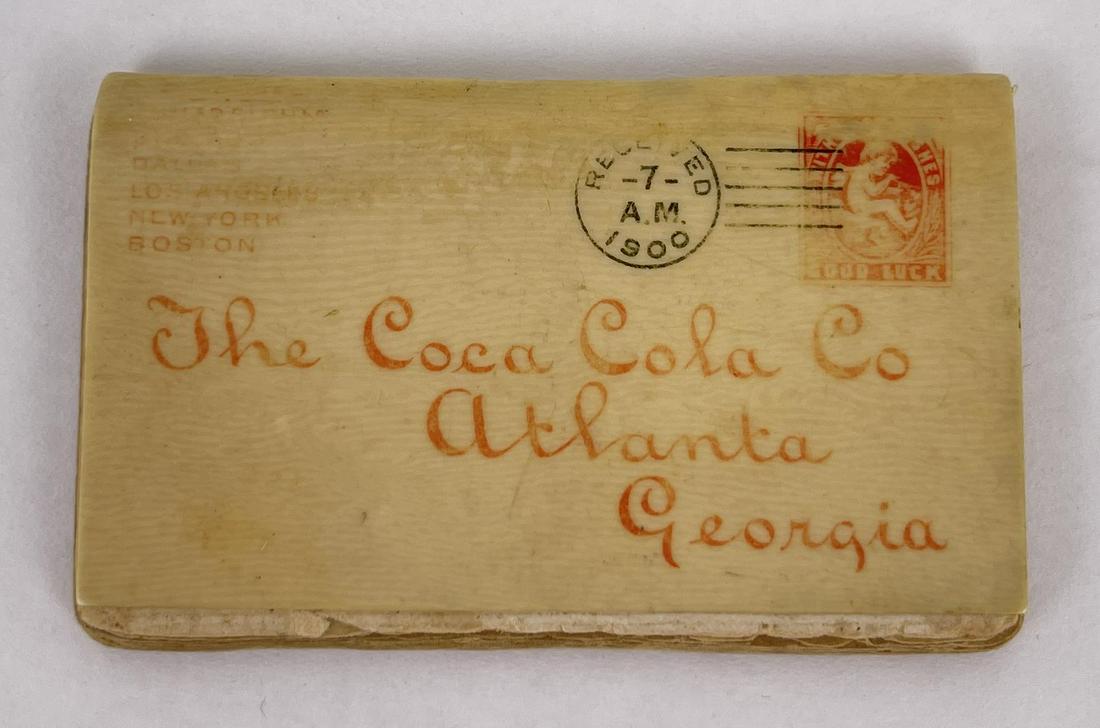 PHILADELPHIA
DALLAS
LOS ANGELES
NEW YORK
BOSTON
RECEIVED
-7-
A.M.
1900
WITH WISHES
GOOD LUCK
The Coca Cola Co
Atlanta
Georgia